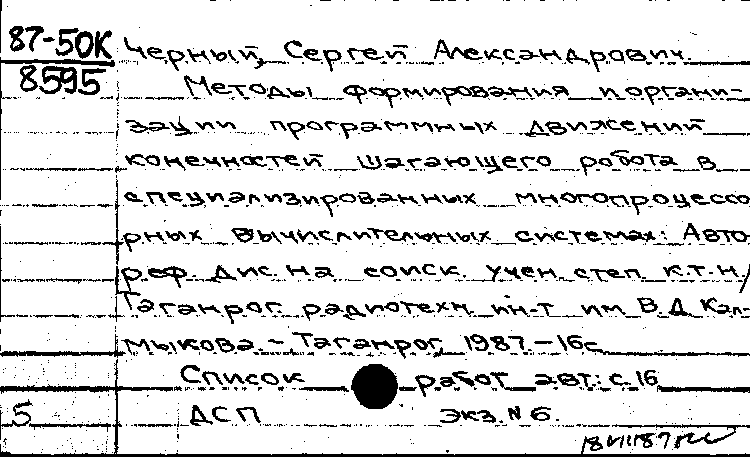 87-50К
8595
Черный, Сергей Александрович.
Методы формирования и органи-
зации программных движений
конечностей шагающего робота в
специализированных многопроцессо
рных вычислительных системах: Авто
реф. дис. на соиск. учен. степ. к.т.н./
Таганрог. радиотехн. ин-т им В.Д. Кал-
мыкова. - Таганрог, 1987. - 16с.
Список работ авт.: с.16
5 ДСП экз. N 6.
18 VII 87